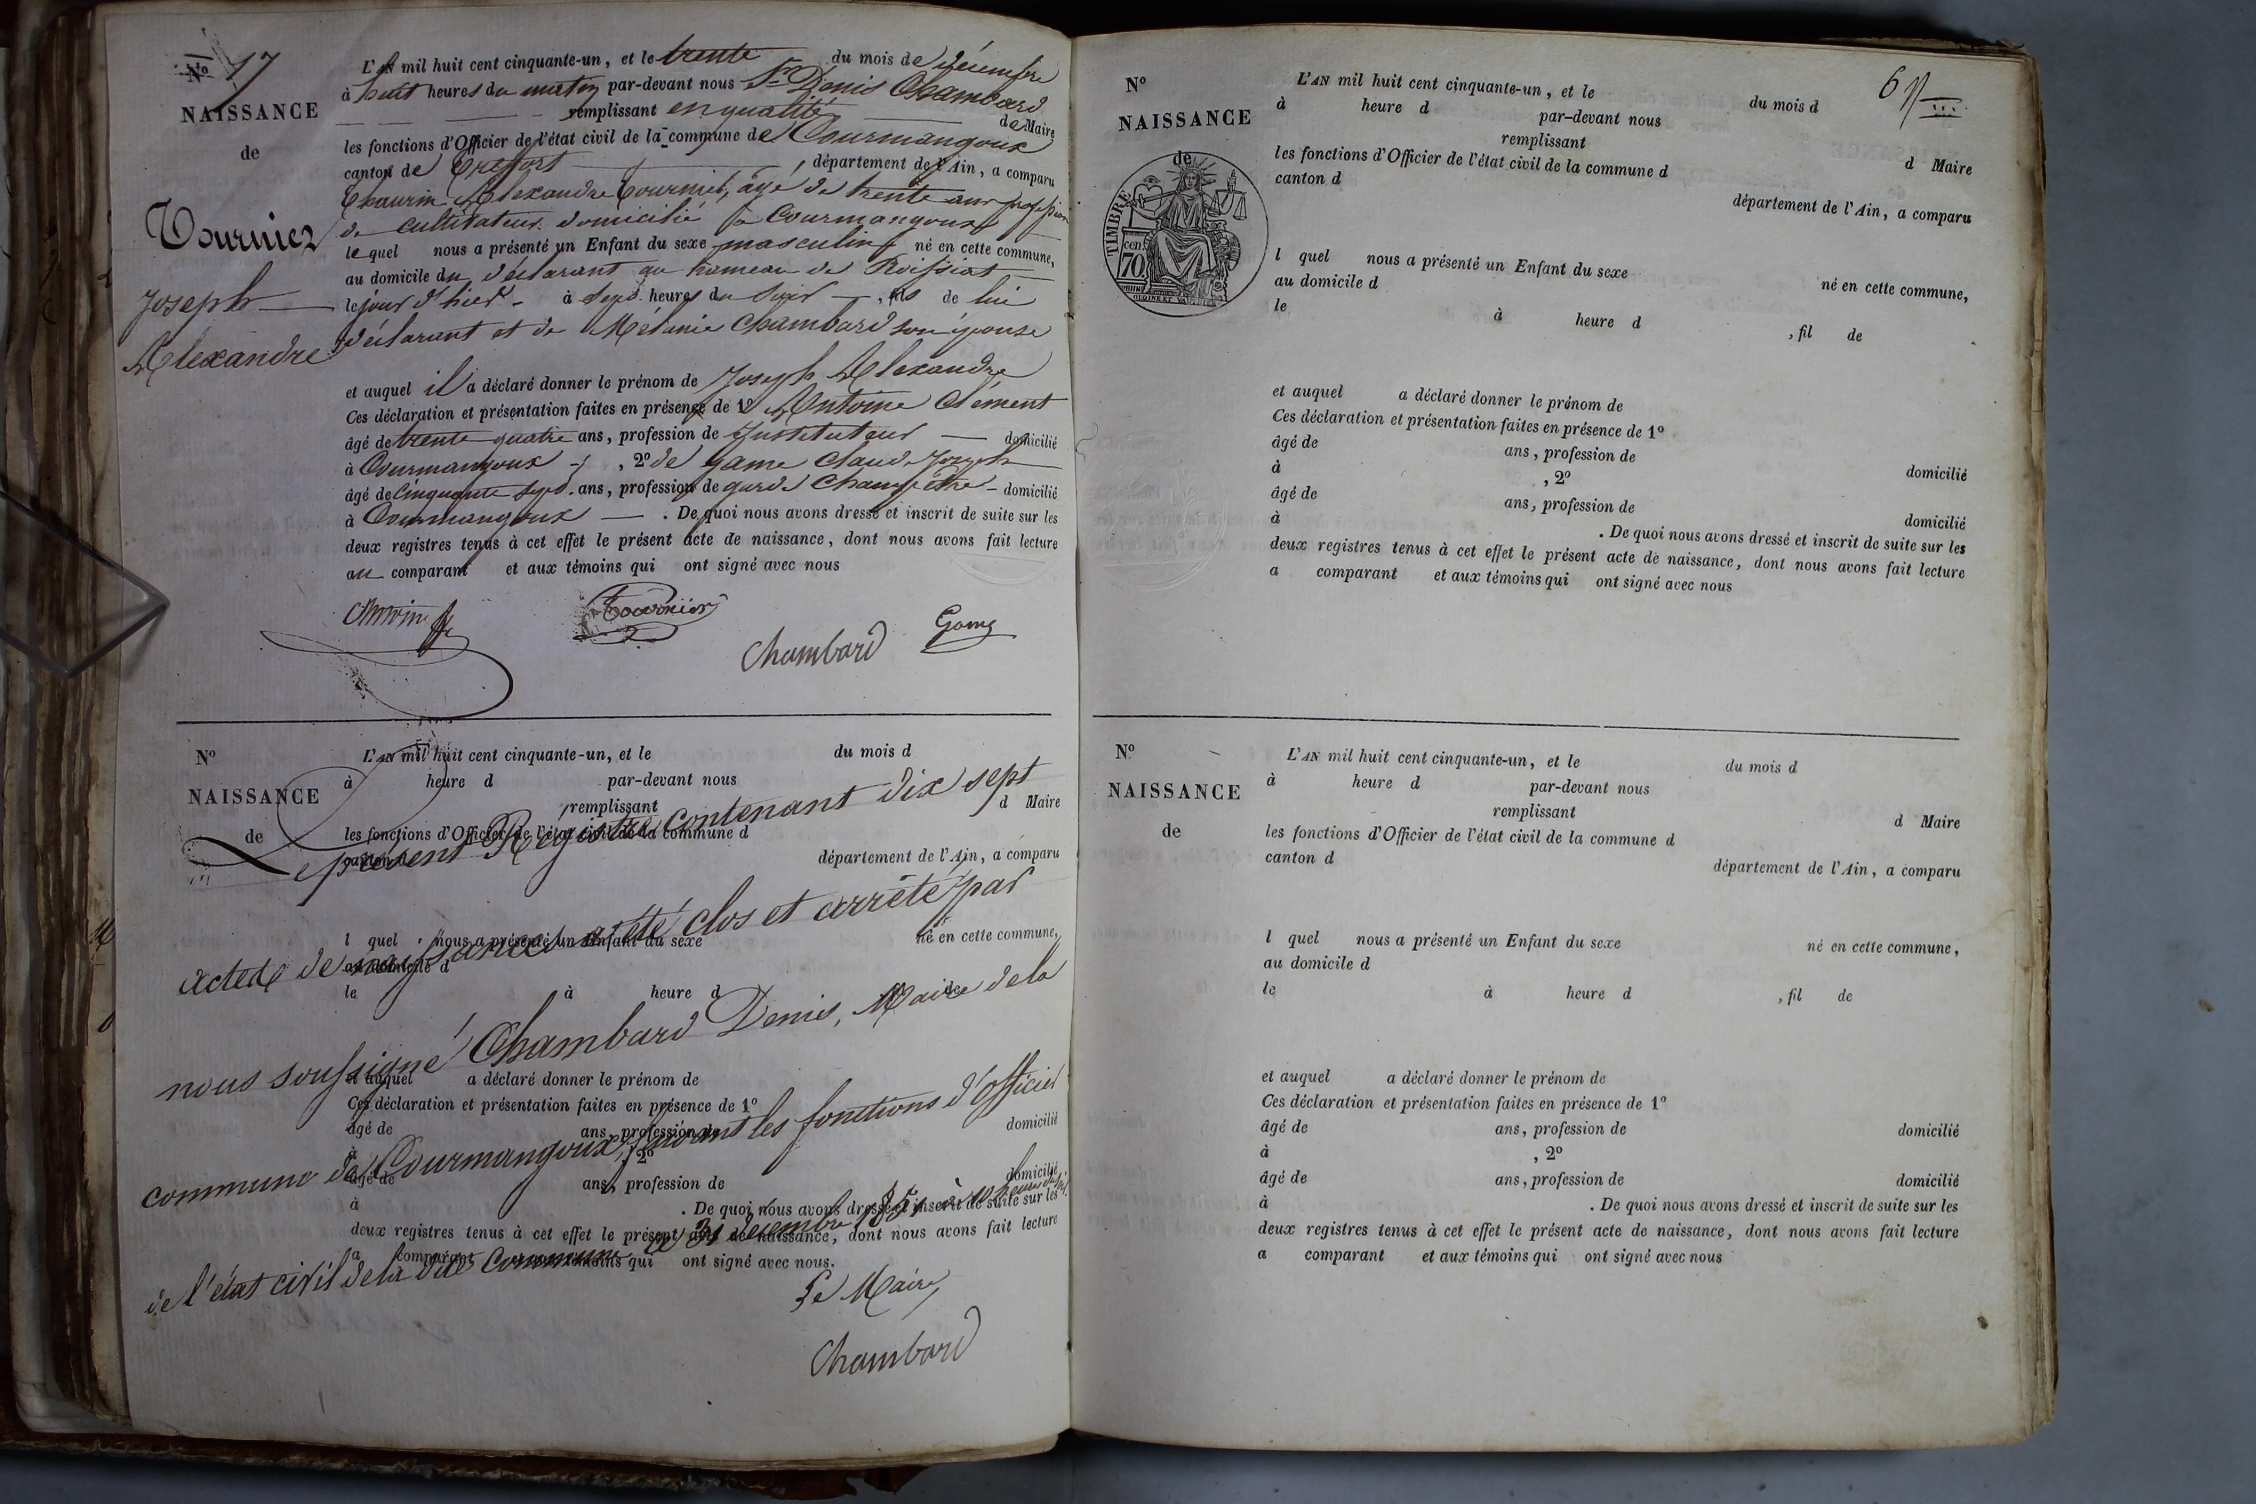 Nº 17
NAISSANCE
de
Tournier
Joseph
Alexandre
L'AN mil huit cent cinquante-un, et le trente du mois de décembre
à huit heures du matin par-devant nous Denis Chambard
remplissant en qualité de Maire
les fonctions d'Officier de l'état civil de la commune de Courmangoux
canton de Treffort département de l'Ain, a comparu
Alexandre Tournier, âgé de trente ans profession
de cultivateur domicilié à Courmangoux
lequel nous a présenté un Enfant du sexe masculin né en cette commune,
au domicile du déclarant au hameau de Roissiat
le jour d'hier à sept heures du soir, fils de lui
déclarant et de Mélanie Chambard son épouse
et auquel il a déclaré donner le prénom de Joseph Alexandre
Ces déclaration et présentation faites en présence de 1º Antoine Clément
âgé de trente quatre ans, profession de Instituteur domicilié
à Courmangoux, 2º de game Claude Joseph
âgé de cinquante sept ans, profession de garde Champêtre domicilié
à Courmangoux. De quoi nous avons dressé et inscrit de suite sur les
deux registres tenus à cet effet le présent acte de naissance, dont nous avons fait lecture
au comparant et aux témoins qui ont signé avec nous
Antoine
Tournier
Chambard
Game
Nº
NAISSANCE
de
L'AN mil huit cent cinquante-un, et le du mois d
à heure d par-devant nous
remplissant d Maire
les fonctions d'Officier de l'état civil de la commune d
canton d département de l'Ain, a comparu
l quel nous a présenté un Enfant du sexe né en cette commune,
au domicile d
le à heure d , fil de
et auquel a déclaré donner le prénom de
Ces déclaration et présentation faites en présence de 1º
âgé de ans, profession de domicilié
à , 2º
âgé de ans, profession de domicilié
à . De quoi nous avons dressé et inscrit de suite sur les
deux registres tenus à cet effet le présent acte de naissance, dont nous avons fait lecture
a comparant et aux témoins qui ont signé avec nous.
Le présent Registre contenant dix sept
actes de naissances a été clos et arrêté par
nous soussigné Chambard Denis, Maire de la
commune de Courmangoux, faisant les fonctions d'officier
de l'état civil de la dite Commune ce 31 décembre 1851 à 10 heures du
Le Maire
Chambard
6
Nº
NAISSANCE
de
TIMBRE
70 cen
L'AN mil huit cent cinquante-un, et le du mois d
à heure d par-devant nous
remplissant d Maire
les fonctions d'Officier de l'état civil de la commune d
canton d département de l'Ain, a comparu
l quel nous a présenté un Enfant du sexe né en cette commune,
au domicile d
le à heure d , fil de
et auquel a déclaré donner le prénom de
Ces déclaration et présentation faites en présence de 1º
âgé de ans, profession de domicilié
à , 2º
âgé de ans, profession de domicilié
à . De quoi nous avons dressé et inscrit de suite sur les
deux registres tenus à cet effet le présent acte de naissance, dont nous avons fait lecture
a comparant et aux témoins qui ont signé avec nous
Nº
NAISSANCE
de
L'AN mil huit cent cinquante-un, et le du mois d
à heure d par-devant nous
remplissant d Maire
les fonctions d'Officier de l'état civil de la commune d
canton d département de l'Ain, a comparu
l quel nous a présenté un Enfant du sexe né en cette commune,
au domicile d
le à heure d , fil de
et auquel a déclaré donner le prénom de
Ces déclaration et présentation faites en présence de 1º
âgé de ans, profession de domicilié
à , 2º
âgé de ans, profession de domicilié
à . De quoi nous avons dressé et inscrit de suite sur les
deux registres tenus à cet effet le présent acte de naissance, dont nous avons fait lecture
a comparant et aux témoins qui ont signé avec nous